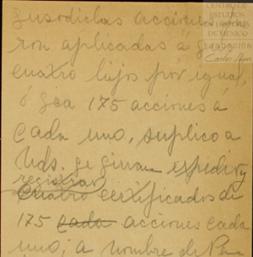 susodichas acciones
ron aplicadas a
cuatro hijos por igual,
ó sea 175 acciones a
cada uno, suplico a
Uds. se sirvan expedir y
registrar
cuatro certificados de
175 cada acciones cada
uno; a nombre de